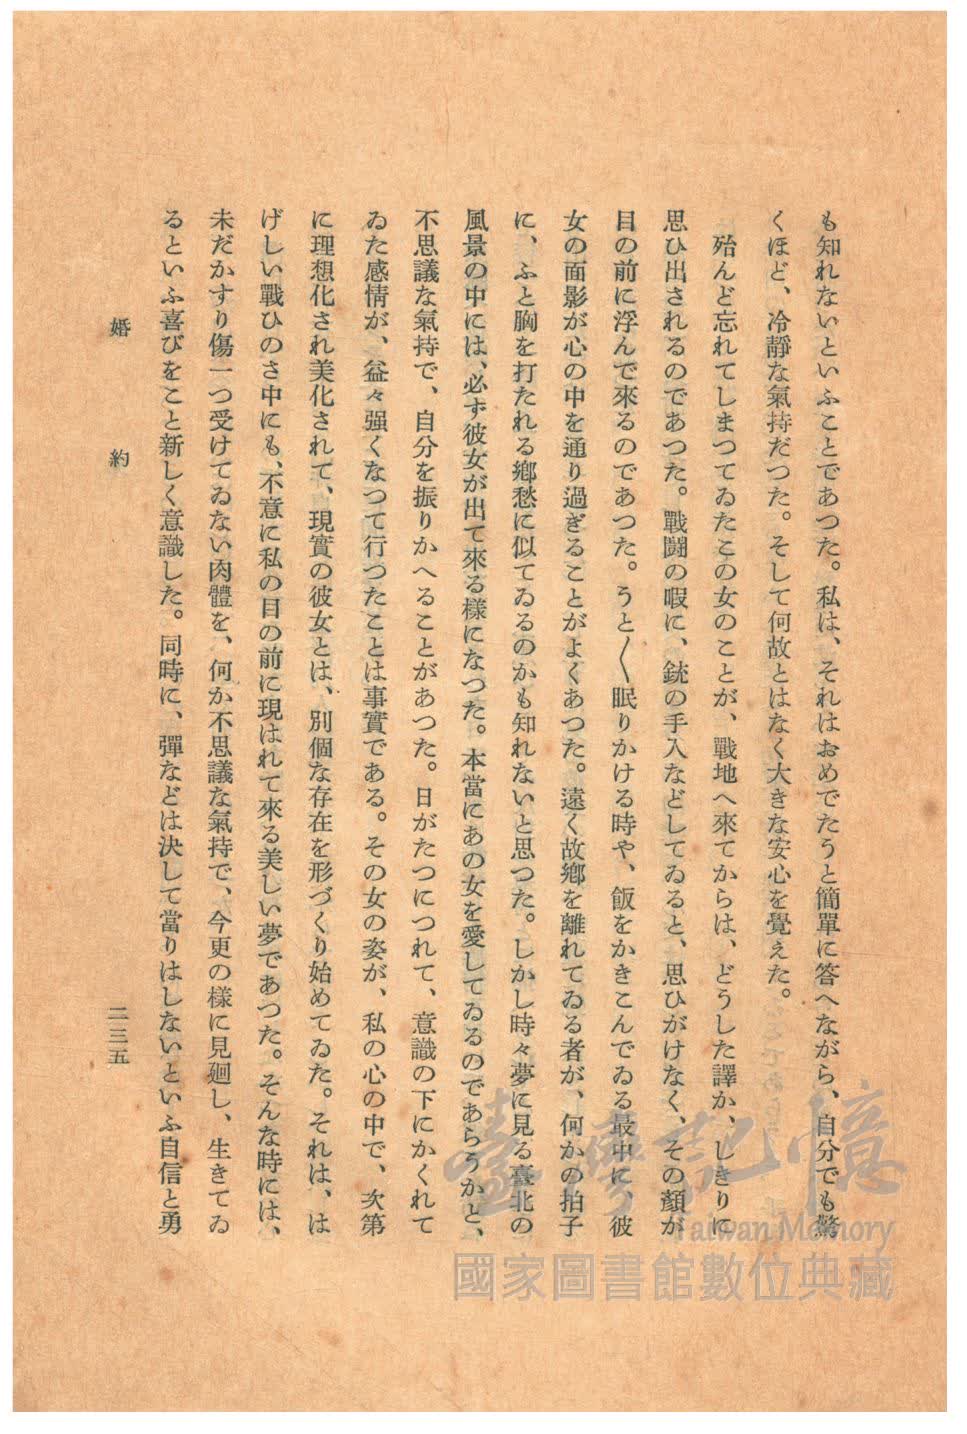 も知れないといふことであつた。私は、それはおめでたうと簡單に答へながら、自分でも驚
くほど、冷靜な氣持だつた。そして何故とはなく大きな安心を覺えた。
殆んど忘れてしまつてゐたこの女のことが、戰地へ來てからは、どうした譯か、しきりに
思ひ出されるのであつた。戰鬪の暇に、銃の手入などしてゐると、思ひがけなく、その顏が
目の前に浮んで來るのであつた。うと〱眠りかける時や、飯をかきこんでゐる最中に、彼
女の面影が心の中を通り過ぎることがよくあつた。遠く故鄕を離れてゐる者が、何かの拍子
に、ふと胸を打たれる鄕愁に似てゐるのかも知れないと思つた。しかし時々夢に見る臺北の
風景の中には、必ず彼女が出て來る樣になつた。本當にあの女を愛してゐるのであらうかと、
不思議な氣持で、自分を振りかへることがあつた。日がたつにつれて、意識の下にかくれて
ゐた感情が、益々强くなつて行つたことは事實である。その女の姿が、私の心の中で、次第
に理想化され美化されて、現實の彼女とは、別個な存在を形づくり始めてゐた。それは、は
げしい戰ひのさ中にも、不意に私の目の前に現はれて來る美しい夢であつた。そんな時には、
未だかすり傷一つ受けてゐない肉體を、何か不思議な氣持で、今更の樣に見廻し、生きてゐ
るといふ喜びをこと新しく意識した。同時に、彈などは決して當りはしないといふ自信と勇
婚約
二三五
臺灣記憶
Taiwan Memory
國家圖書館數位典藏